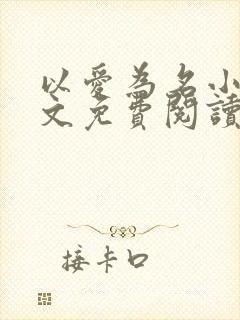 以愛為名小
文免費閱讀
接卡口